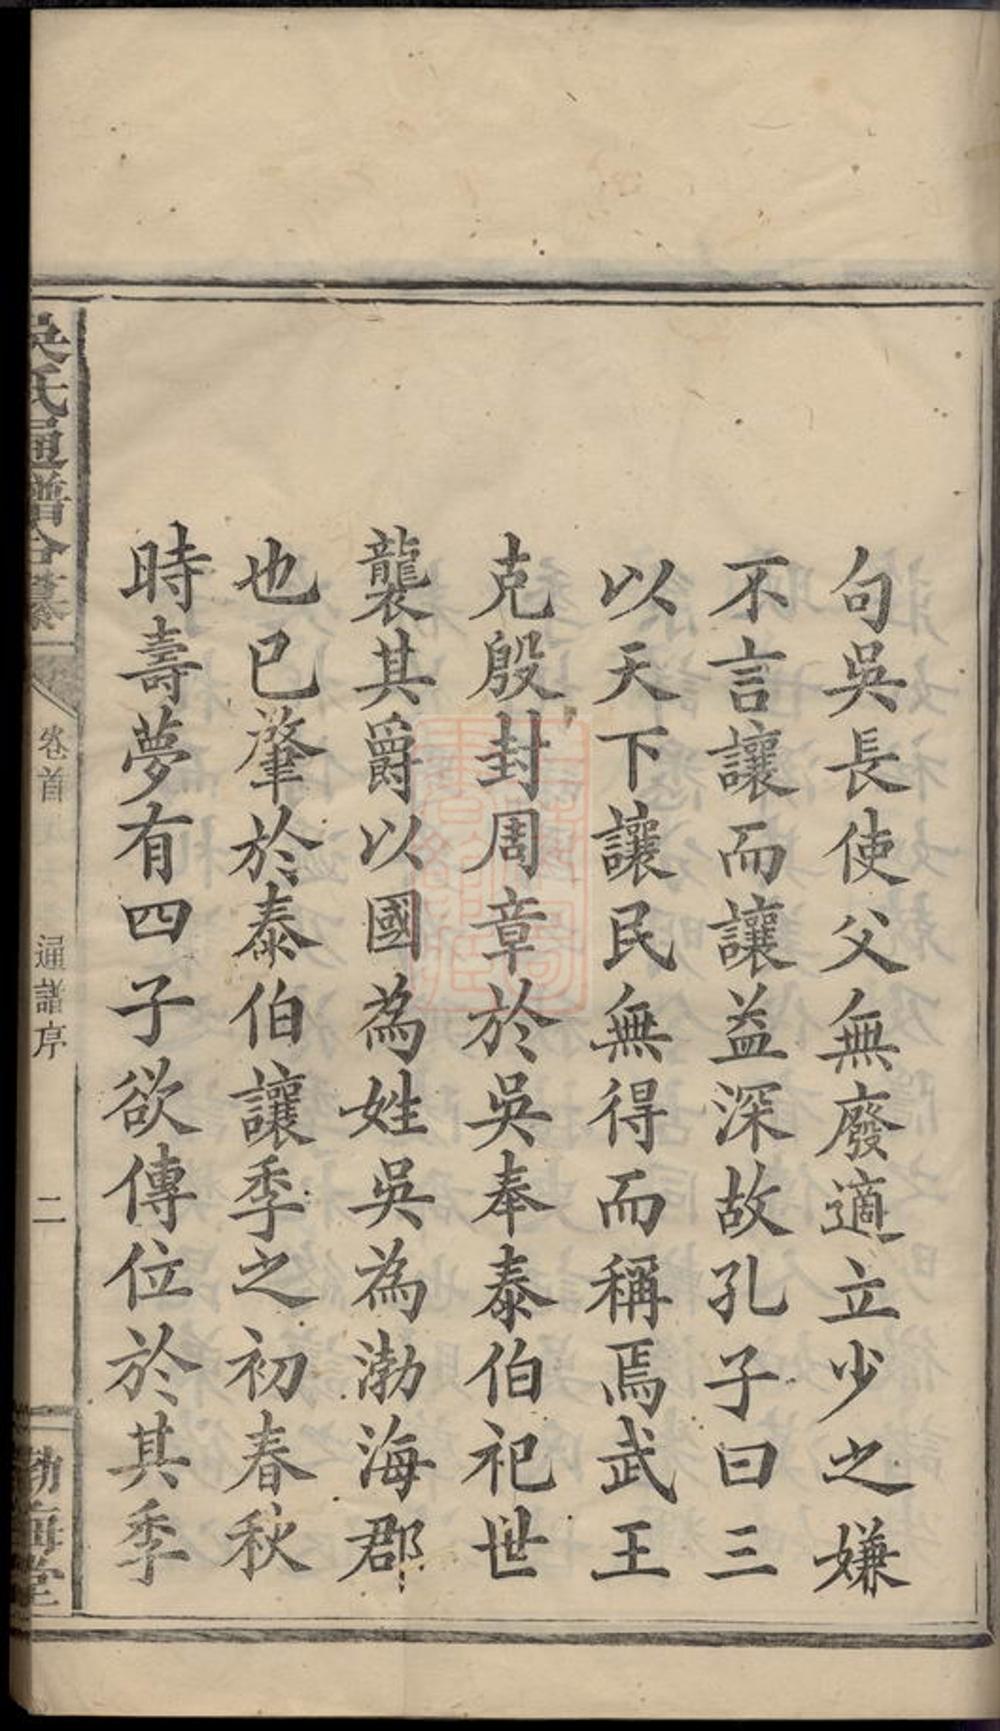 句吳長使父無廢適立少之嫌
不言讓而讓益深故孔子曰三
以天下讓民無得而稱焉武王
克殷封周章於吳奉泰伯祀世
襲其爵以國為姓吳為渤海郡
也已肇於泰伯讓季之初春秋
時壽夢有四子欲傳位於其季
吳氏通譜合纂
卷首
通譜序
二
渤海堂